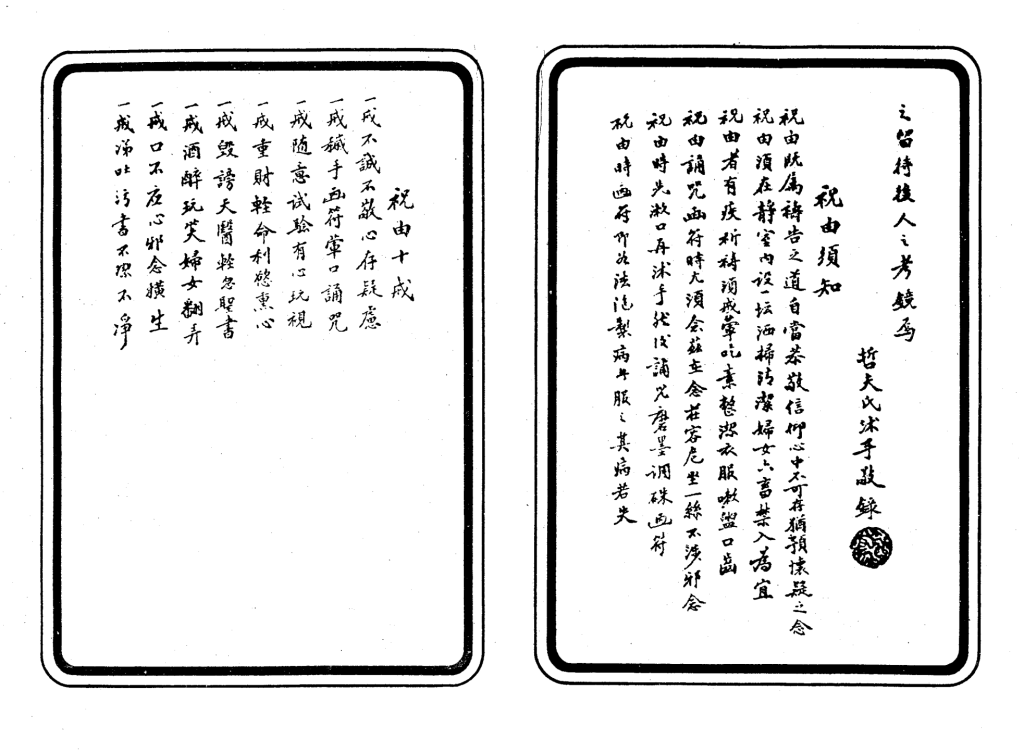 之留待後人之考鏡焉
哲夫氏沐手敬録
祝由須知
祝由既属祷告之道自當恭敬信仰心中不可存猶預懷疑之念
祝由須在静室内设一坛洒掃清潔婦女六畜禁入為宜
祝由者有疾祈祷須戒葷吃素整潔衣服嗽盥口齒
祝由誦咒画符時尤須念兹在念荘容危坐一絲不涉邪念
祝由時先漱口再沐手然後誦咒磨墨调硃画符
祝由時画符即如法泡製病者服之其病若失
祝由十戒
一戒不誠不敬心存疑慮
一戒穢手画符葷口誦咒
一戒随意試驗有心玩視
一戒重財軽命利慾熏心
一戒毁謗天醫軽忽聖書
一戒酒醉玩笑婦女翻弄
一戒口不应心邪念横生
一戒涕吐污書不潔不净